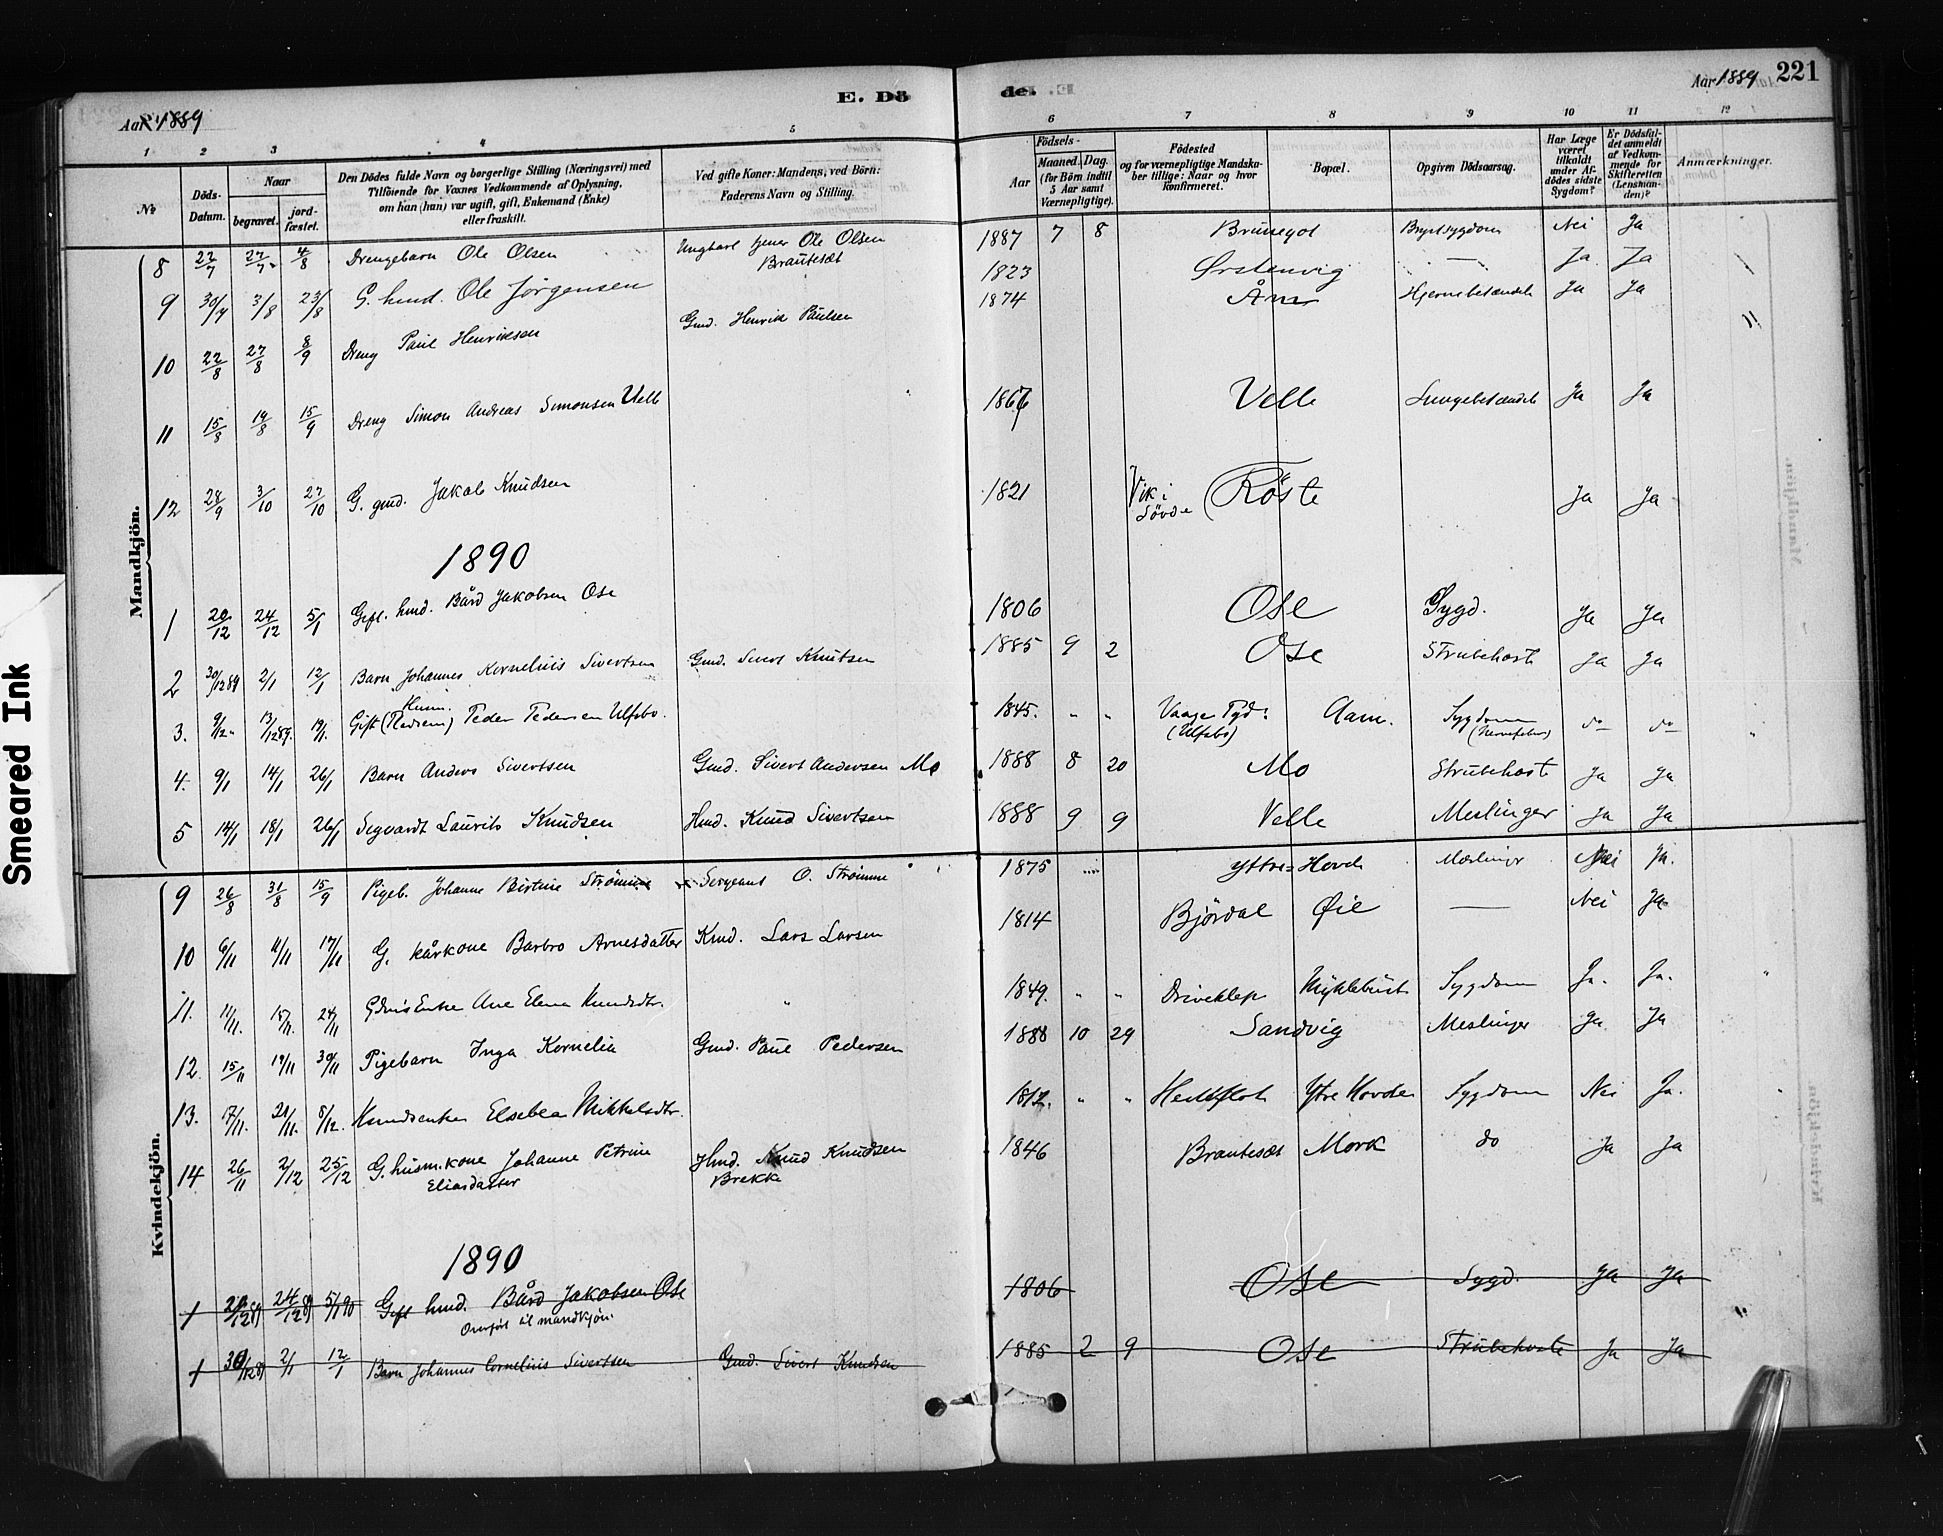 Aar 1889
E. Dö
de.
Aar 1889 221
1 2 3 4 5 6 7 8 9 10 11 12
№
Döds-Datum.
Naar
begravet.
jord-fæstet.
Den Dödes fulde Navn og borgerlige Stilling (Næringsvei) med
Tilföiende for Voxnes Vedkommende af Oplysning,
om han (hun) var ugift, gift, Enkemand (Enke)
eller fraskilt.
Ved gifte Koner: Mandens, ved Börn:
Faderens Navn og Stilling.
Aar
Födsels-
Maaned. Dag.
(for Börn indtil
5 Aar samt
Værnepligtige).
Födested
og for værnepligtige Mandska-
ber tillige: Naar og hvor
konfirmeret.
Bopæl.
Opgiven Dödsaarsag.
Har Læge
været
tilkaldt
under Af-
dödes sidste
Sygdom?
Er Dödsfal-
det anmeldt
af Vedkom-
mende for
Skifteretten
(Lensman-
den)?
Anmærkninger.
Mandkjön.
8 22/7 27/7 4/8 Drengebarn Ole Olsen Ungkarl tjener Ole Olsen 1887 7 8 Brystsygdom Nei Ja
Brautesæt
9 30/7 3/8 23/8 G. husd. Ole Jörgensen 1823 Ørstenvig — Ja Ja
10 22/8 27/8 8/9 Dreng Paul Henriksen Gmd. Henrik Paulsen 1874 Åm Hjernebetændels Ja Ja
11 15/8 19/8 15/9 Dreng Simon Andreas Simonsen Velle 1867 Velle Lungebetændels Ja Ja
12 28/9 3/10 27/10 G. gmd. Jakob Knudsen 1821 Vik i Röste Ja Ja
Sövde
1890
1 20/12 24/12 5/1 Gift. hmd. Bård Jakobsen Ose 1806 Ose Sygd. Ja Ja
2 30/12 89 2/1 12/1 Barn Johannes Kornelius Sivertsen Gmd. Sivert Knutsen 1885 9 2 Ose Strubehoste Ja Ja
Husm.
3. 9/12 13/12 89. 19/1. Gift Peder Pedersen Ulfsbo. 1845. " " Vaage Aam. Sygdom do do
(Ulfsbo)
4. 9/1 14/1 26/1 Barn Anders Sivertsen Gmd. Sivert Andersen Mo 1888 8 20 Mo Strubehoste Ja Ja
5 14/1 18/1 26/1 Sigvardt Laurits Knudsen Hmd. Knud Sivertsen 1888 9 9 Velle Meslinger Ja Ja
Kvindekjön.
9 26/8 31/8 15/9 Pigeb. Johanne Bertine Strömme Sergeant O. Strömme 1875 Yttre-Hovde Meslinger Nei Ja.
10 6/11 11/11 17/11 G. kårkone Barbro Arnesdatter Kmd. Lars Larsen 1814 Björdal Øie — Nei Ja
11. 11/11. 15/11. 24/11 Enke Ane Elena Knudsdtr. " 1849. " " Driveklep Myklebust Sygdom Ja. Ja.
12. 15/11 19/11 30/11 Pigebarn Inga Kornelia Gmd. Paul Pedersen 1888 10 29 Sandvig Meslinger Ja Ja
13. 17/11. 21/11. 8/12. Elseblea Mikkelsdtr. 1812. " " Ytre Hovde Sygdom Nei Ja.
14. 26/11 2/12 25/12 G. husm.kone Johanne Petrine Hmd. Knud Knudsen 1846 Brautesæt Mork do Ja Ja
Eliasdatter Brekke
1890
1 20/12 89 24/12 89 5/1 90 Gift hmd. Bård Jakobsen Ose 1806 Ose Sygd. Ja Ja
Overført til mandkjön.
1 30/12 89 2/1 12/1 Barn Johannes Cornelius Sivertsen Gmd. Sivert Knudsen 1885 2 9 Ose Strubehoste Ja Ja
Smeared Ink